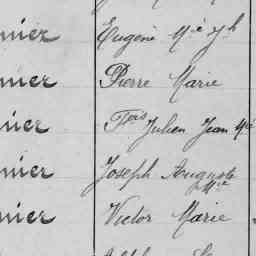 mier Eugène Mie Jh
mier Pierre Marie
mier Fçois Julien Jean Mie
mier Joseph Auguste Mie
mier Victor Marie